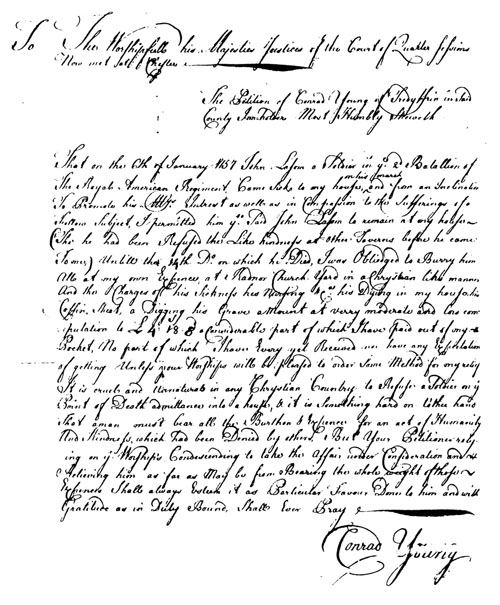 To The Worshipfull his Majesties Justices of the Court of Quarter Sessions
Now met att Chester
The Petition of Conrad Young of Tredyffrin in Said
County Innholder Most Humbly Sheweth
That on the 6th of January 1757 John Lason a Soldier in ye 2d Batallion of
The Royal American Regiment, Came Sick to my house, on his march and from an Inclination
To Promote his Majts. Interest as well as in Compassion to the Sufferings of a
Fellow Subject, I permitted him ye Said John Lason to remain at my house
(Tho he had been Refused the Like kindness at other Taverns before he came
to me) Untill the 14th Do. on which he Died, I was Obliedged to Burry him
Allso at my own Expence at Radnor Church Yard in a Chrystian like manner
And the Charges of his Sickness his Nursing &ca his Dying in my house his
Coffin, Sheet, a Digging his Grave amount at verry moderate and low com
putation to £ 4 " 18 " 8 a Considerable part of which I have Paid out of my
Pocket, No part of which I have Every yet Received nor have any Expectation
of getting Unless your Worships will be pleased to order Some Method for my relief
It is cruel and Unnatural in any Chrystian Country to Refuse a Soldier on ye
Point of Death admittance into a house, & it is Something hard on tother hand
that a man must bear all the Burthen & Expence for an act of Humanity
And Kindness, which had been Denied by others. But Your Petitioner rely
ing on ye Worship's Condesending to take the Affair under Consideration and
Relieving him as far as May be from Bearing the whole weight of those
Expences Shall always Esteem it as Particular Favour Done to him and with
Gratitude as in Duty Bound, Shall Ever Pray
Conrad Young